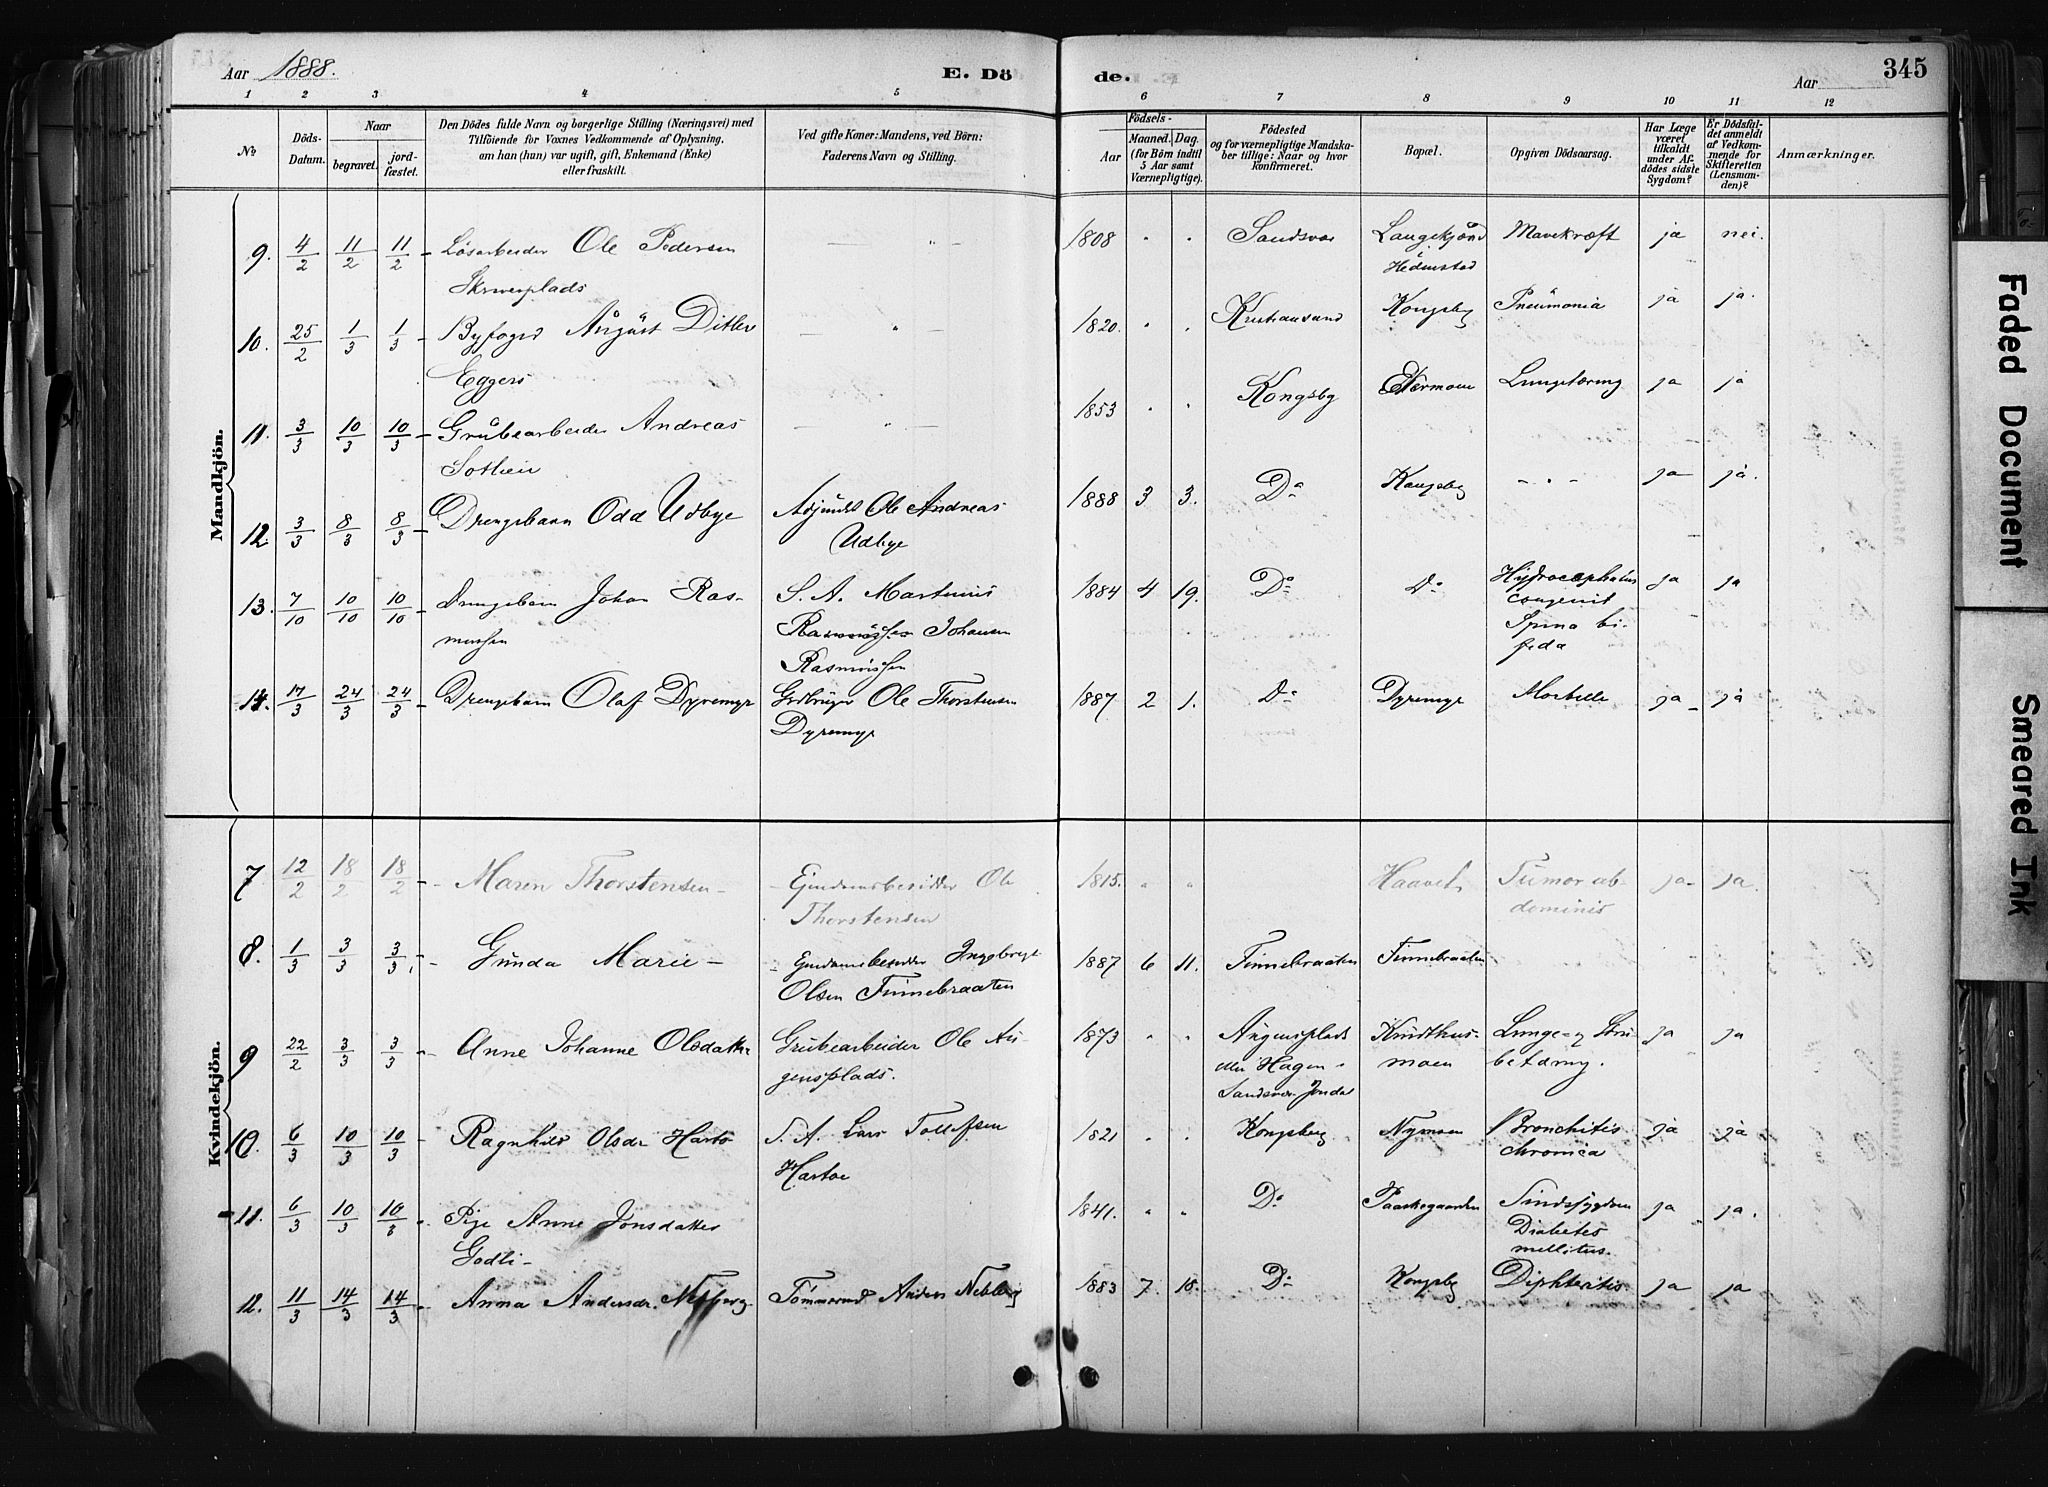 Aar 1888.
E. Dö
de.
Aar
345
1 2 3 4 5 6 7 8 9 10 11 12
No
Döds-
Datum.
Naar
begravet.
jord-
fæstet.
Den Dödes fulde Navn og borgerlige Stilling (Næringsvei) med
Tilföiende for Voxnes Vedkommende af Oplysning,
om han (hun) var ugift, gift, Enkemand (Enke)
eller fraskilt.
Ved gifte Koner: Mandens, ved Börn:
Faderens Navn og Stilling.
Födsels-
Aar
Maaned. Dag.
(for Börn indtil
5 Aar samt
Værnepligtige).
Födested
og for værnepligtige Mandska-
ber tillige: Naar og hvor
konfirmeret.
Bopæl.
Opgiven Dödsaarsag.
Har Læge
været
tilkaldt
under Af-
dödes sidste
Sygdom?
Er Dödsfal-
det anmeldt
af Vedkom-
mende for
Skifteretten
(Lensman-
den)?
Anmærkninger.
Mandkjön.
9. 4/2 11/2 11/2 - Løsarbeider Ole Pedersen " 1808 " " Sandsvær Langekjønd Mavekræft ja nei.
Hedenstad
10. 25/2 1/3 1/3 - Byfoged August Ditlev " 1820. " " Kristiansand Kongsbg Pneumonia ja ja.
Eggers
11. 3/3 10/3 10/3 - Grubearbeider Andreas " 1853 " " Kongsbg Lungetæring ja ja
12 3/3 8/3 8/3 - Drengebarn Odd Udbye Adjunkt Ole Andreas 1888 3 3. Do Kongsbg - " - ja ja.
Udbye
13. 7/10 10/10 10/10 - Drengebarn Johan Ras- S. A. Martinius 1884 4 19. Do Do Hydrocephalus ja ja
mussen Rasmussen Johansen congenit
Spina bi-
fida
Rasmussen
14. 17/3 24/3 24/3 - Drengebarn Olaf Dyremyr Grdbruger Ole Thorstensen 1887 2 1. Do Dyremyr Morbille ja - ja
Dyremyr
Kvindekjön.
7 12/2 18/2 18/2 - Maren Thorstensen - - Eiendomsbesidder Ole 1815. " " Haavet Tumor ab- ja- ja.
Thorstensen dominis
8. 1/3 3/3 3/3 - Gunda Marie - - Eiendomsbesidder Ingebrigt 1887 6 11. Finnebraaten Finnebraaten
Olsen Finnebraaten
9 22/2 3/3 3/3 - Anne Johanne Olsdatter Grubearbeider Ole Au- 1873 " " Augensplads Knudthus- Lunge- og Stru- ja ja
gensplads. eller Hagen moen betæring.
Sandsvær Jondal
10. 6/3 10/3 10/3 - Ragnhild Olsdr Harto S. A. Lars Tollefsen 1821 " " Kongsberg Nymoen Bronchitis ja ja
Hartoe chronica
11. 6/3 10/3 10/3 - Pige Anne Jonsdatter 1841. " " Do Paaskegaarden Sindssygdom ja ja.
Godli - Diabetes
mellitus.
12. 11/3 14/3 14/3 - Anna Andersdr. Nebberg Tömmermd Anders Nebberg 1883 7. 18. Do Kongsbg Diphteritis ja ja
Faded Document
Smeared Ink